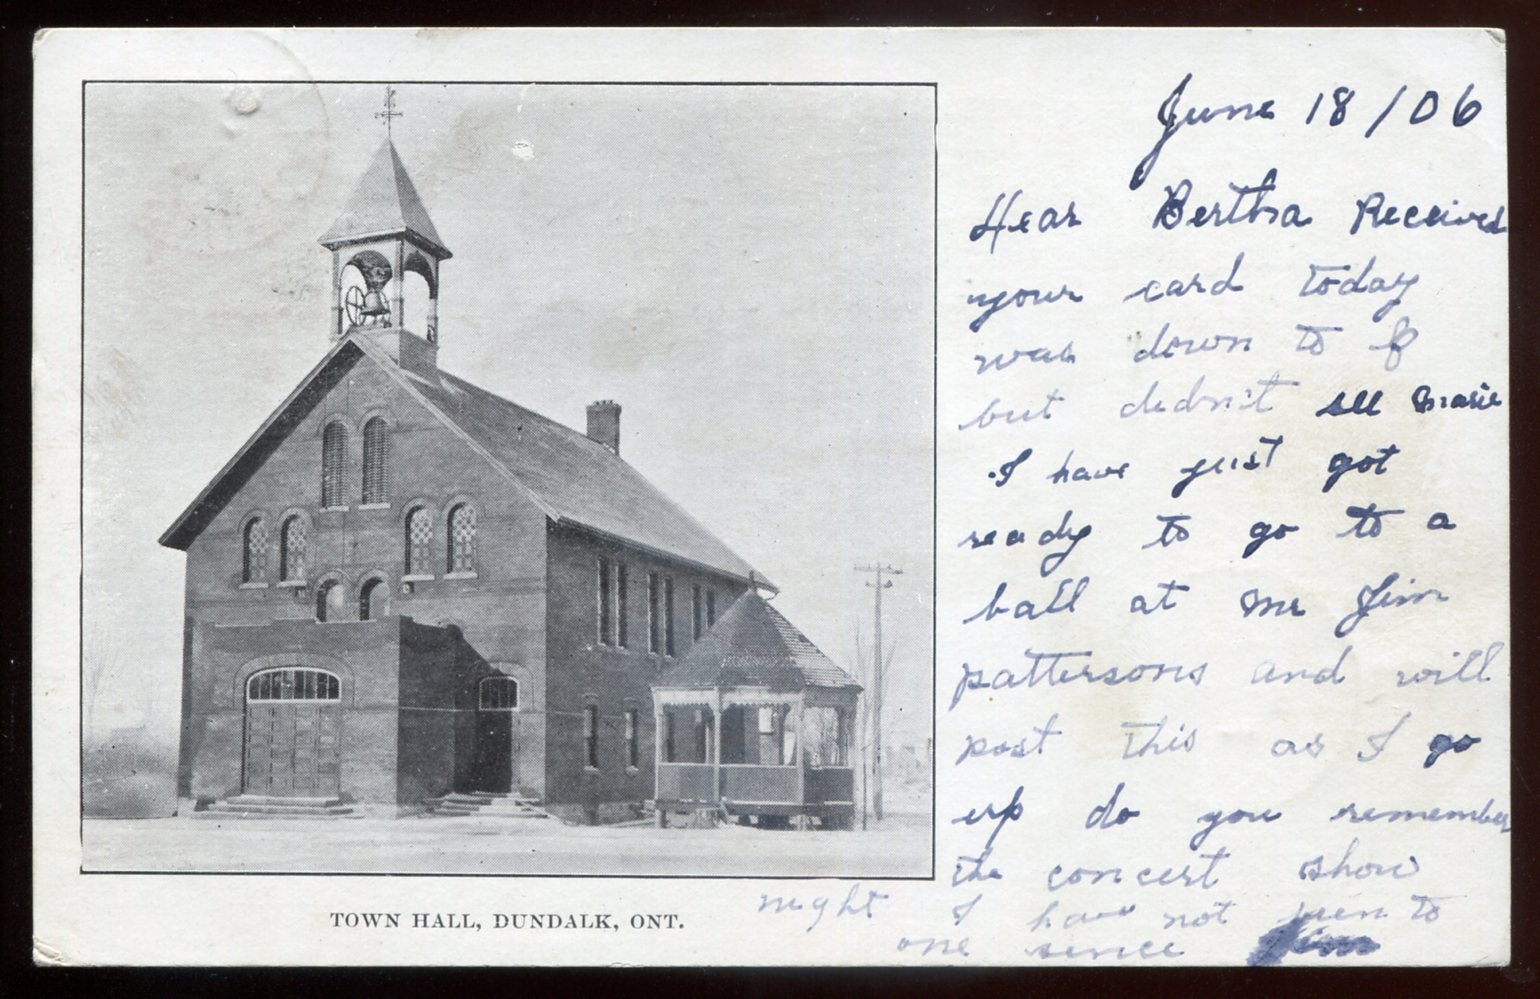 TOWN HALL, DUNDALK, ONT.
June 18/06
Dear Bertha Received
your card today
was down to F
but didn't see Marie
I have just got
ready to go to a
ball at Mr Jim
pattersons and will
post this as I go
up do you remember
the concert show
night I have not been to
one since